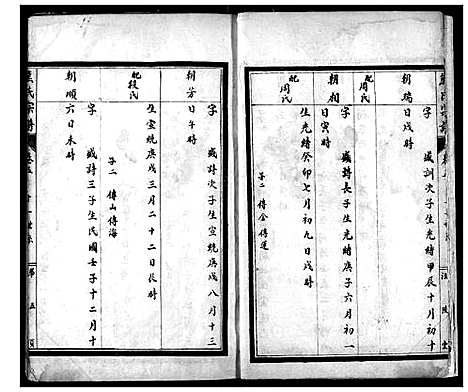 朝瑞
字 盛訓次子生光緒甲辰十月初十
日戌時
配周氏
朝相
字 盛詩長子生光緒庚子六月初一
日寅時
配周氏
生光緒癸卯七月初九日戌時
子二 傳金 傳運
朝芳
字 盛詩次子生宣統庚戌八月十三
日午時
配段氏
生宣統庚戌三月二十二日辰時
子二 傳山 傳海
朝順
字 盛詩三子生民國壬子十二月十
六日未時
氏宗譜
第五頁